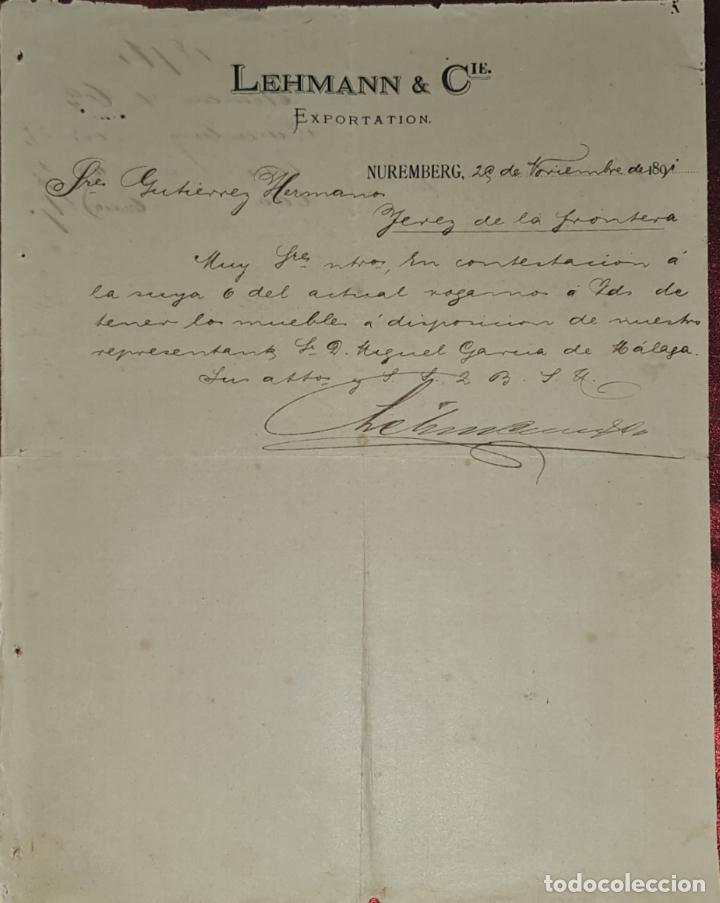 LEHMANN & CIE.
EXPORTATION.
NUREMBERG, 20 de Noviembre de 1891
Sres Gutiérrez Hermanos
Jerez de la Frontera
Muy Sres ntros, En contestación á
la suya 6 del actual rogamos á Vds de
tener los muebles á disposicion de nuestro
representante Sr D. Miguel Garcia de Málaga.
Sus attos y S. S. Q B. S. M.
Lehmann & Co.
todocoleccion.net